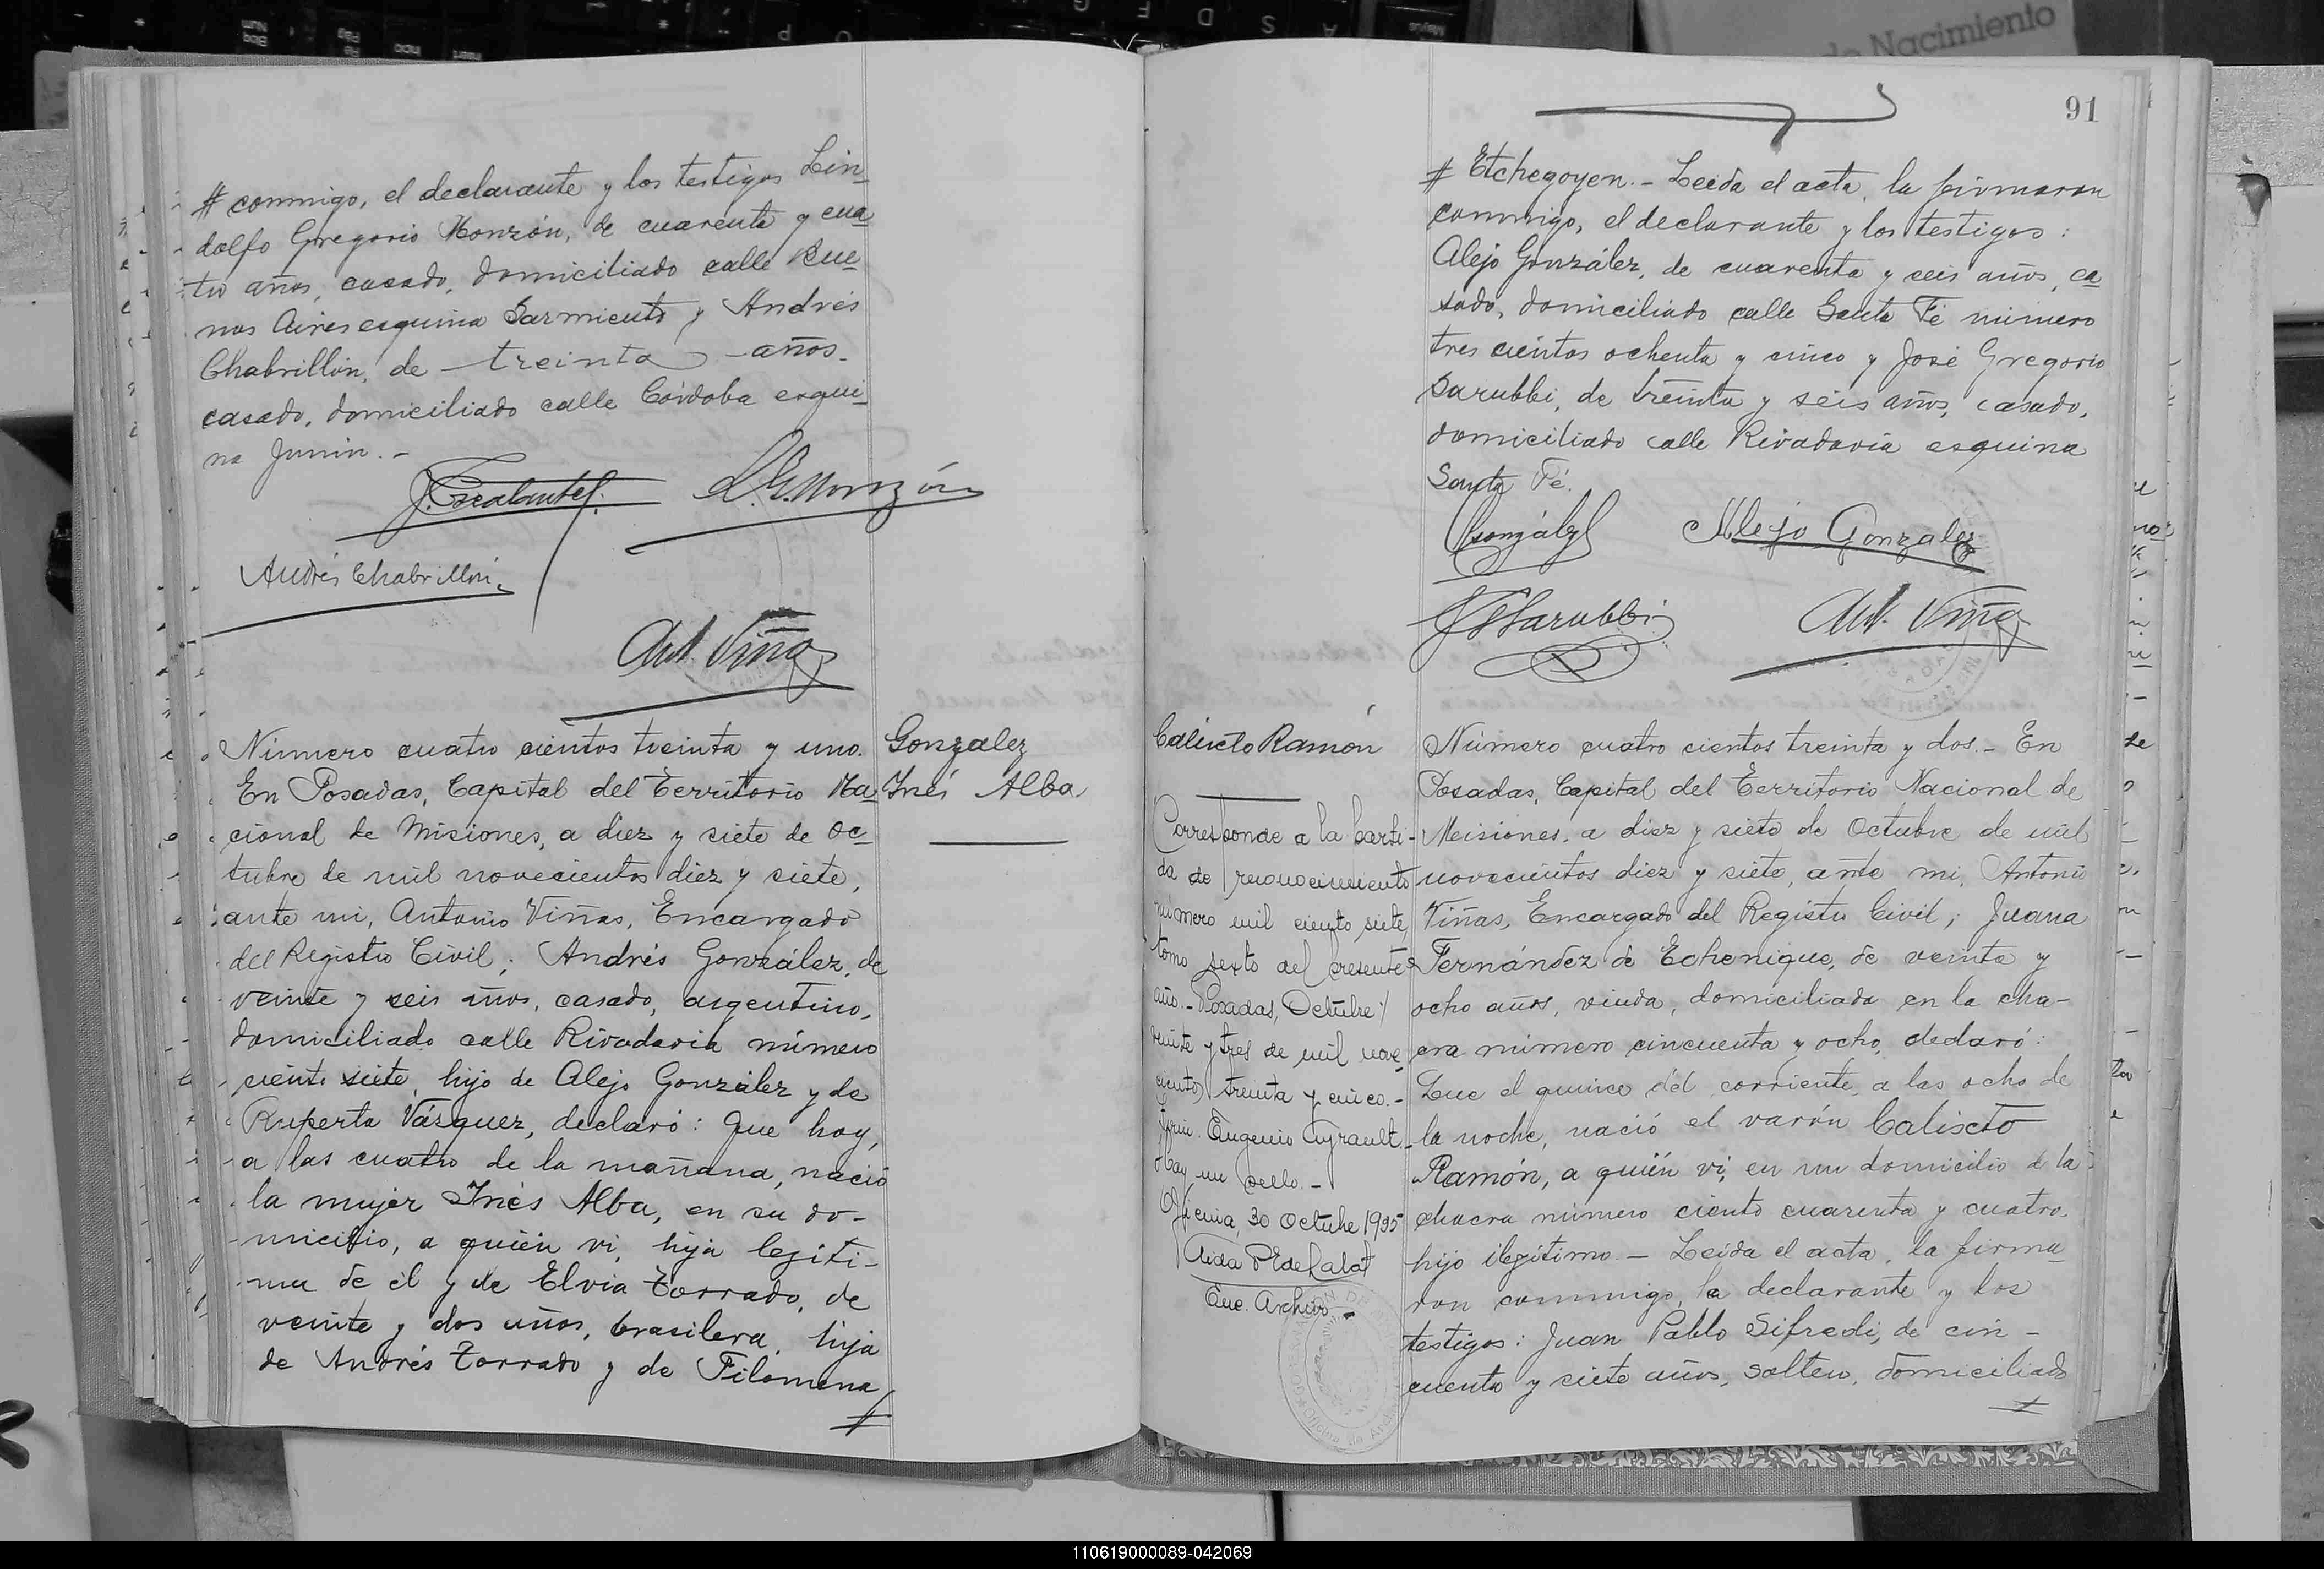 # conmigo, el declarante y los testigos Lin-
dolfo Gregorio Monzón, de cuarenta y cua
tro años, casado, domiciliado calle Bue-
nos Aires esquina Sarmiento y Andrés
Chabrillón, de treinta años-
casado, domiciliado calle Córdoba esqui-
na Junin.-
J. Escalante
L. G. Monzón
Andrés Chabrillón
Ant. Viñas
Gonzalez
Inés Alba
Número cuatro cientos treinta y uno.
En Posadas, Capital del Territorio Na-
cional de Misiones, a diez y siete de Oc-
tubre de mil novecientos diez y siete,
ante mi, Antonio Viñas, Encargado
del Registro Civil; Andrés González, de
veinte y seis años, casado, argentino,
domiciliado calle Rivadavia número
ciento siete, hijo de Alejo González y de
Ruperta Vázquez, declaró: Que hoy,
a las cuatro de la mañana, nació
la mujer Inés Alba, en su do-
micilio, a quién vi, hija legíti-
ma de él y de Elvia Torrado, de
veinte y dos años, brasilera, hija
de Andrés Torrado y de Filomena
#
91
# Etchegoyen.- Leída el acta, la firmaron
conmigo, el declarante y los testigos:
Alejo González, de cuarenta y seis años, ca
sado, domiciliado calle Santa Fé número
tres cientos ochenta y cinco y José Gregorio
Sarubbi, de treinta y seis años, casado,
domiciliado calle Rivadavia esquina
Santa Fé.
González
Alejo Gonzalez
J G Sarubbi
Ant. Viñas
Calixto Ramón
Corresponde a la parti-
da de reconocimiento
número mil ciento siete,
tomo sexto del presente
año.- Posadas, Octubre
veinte y tres de mil nove
cientos treinta y cinco.-
Firm. Eugenio Ayrault-
Hay un sello.-
Oficina, 30 Octubre 1935
Aida
Enc. Archivo-
Número cuatro cientos treinta y dos.- En
Posadas, Capital del Territorio Nacional de
Misiones, a diez y siete de Octubre de mil
novecientos diez y siete, ante mi, Antonio
Viñas, Encargado del Registro Civil; Juana
Fernández de Echenique, de veinte y
ocho años, viuda, domiciliada en la cha-
cra número cincuenta y ocho, declaró:
Que el quince del corriente, a las ocho de
la noche, nació el varón Calixto
Ramón, a quién vi, en mi domicilio de la
chacra número ciento cuarenta y cuatro
hijo ilegítimo.- Leída el acta, la firma
ron conmigo, la declarante y los
testigos: Juan Pablo Sifredi, de cin-
cuenta y siete años, soltero, domiciliado
#
de Nacimiento
110619000089-042069